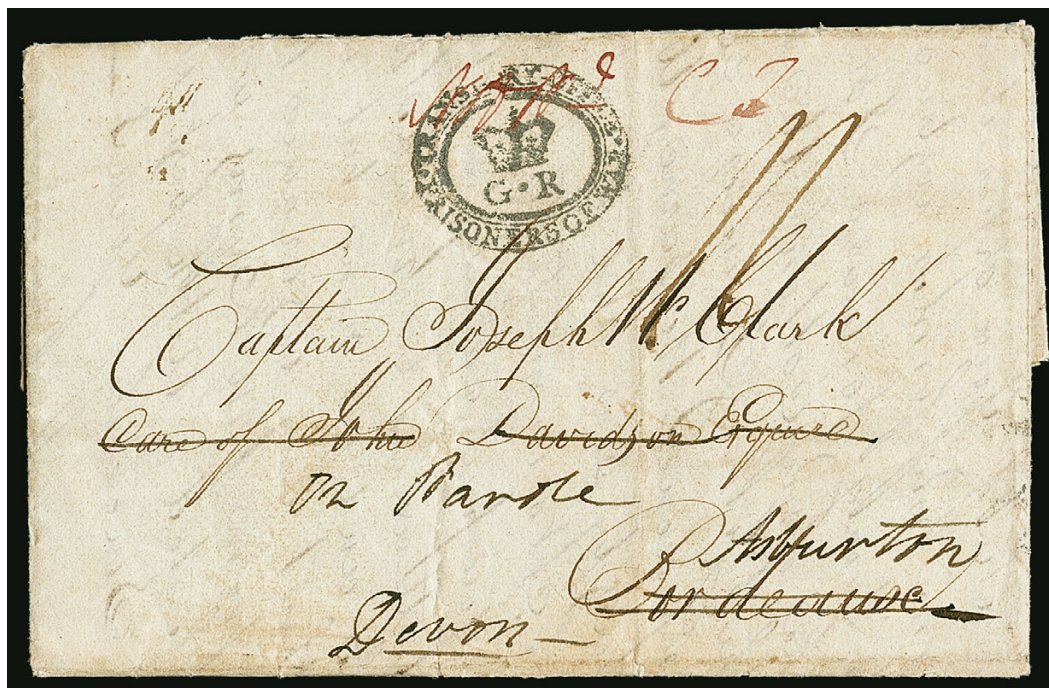 TRANSPORT OFFICE
PRISONERS OF WAR
G·R
Captain Joseph W. Clark
Care of John Davidson Esquire
on Parole
Ashburton
Bordeaux
Devon